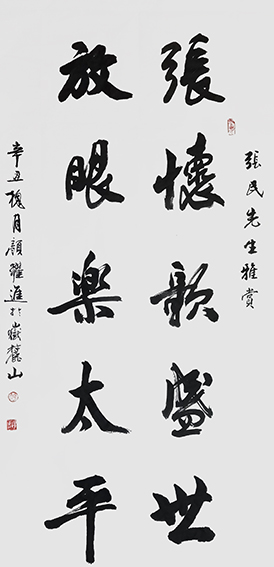 張民先生雅賞
張懷歌盛世
放眼樂太平
辛丑槐月顏躍進於嶽麓山